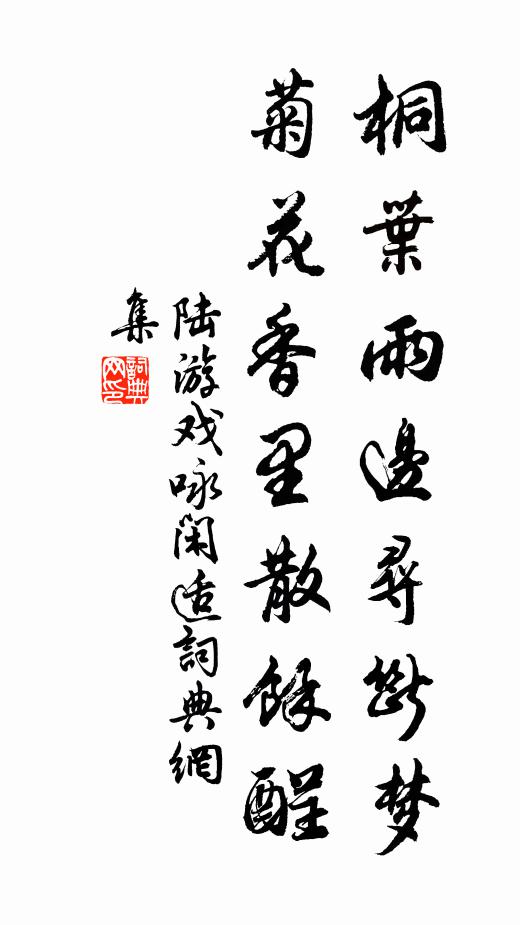 桐葉雨邊尋斷梦
菊花香里散餘酲
陆游戏咏闲适詞典網
集
詞典网印